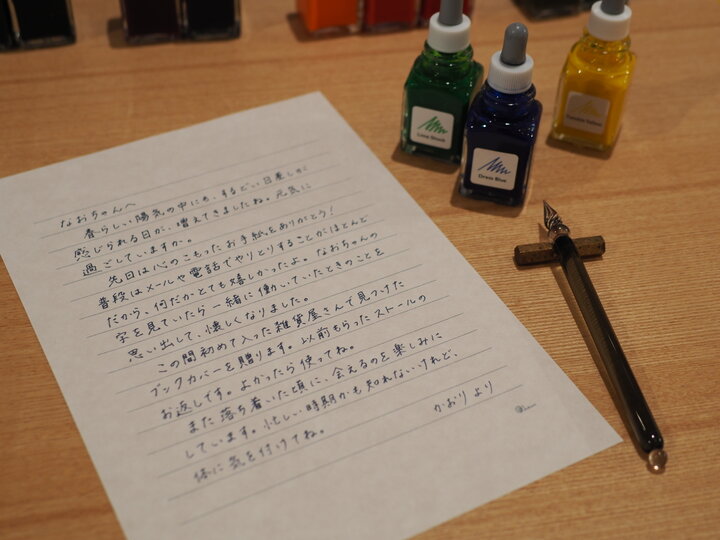 なおちゃんへ
春らしい陽気の中にも、するどい日差しが
感じられる日が、増えてきましたね。元気に
過ごしていますか。
先日は心のこもったお手紙をありがとう!
普段はメールや電話でやりとりすることがほとんど
だから、何だかとても嬉しかったよ。なおちゃんの
字を見ていたら一緒に働いていたときのことを
思い出して、懐しくなりました。
この間初めて入った雑貨屋さんで見つけた
ブックカバーを贈ります。以前もらったストールの
お返しです。よかったら使ってね。
また落ち着いた頃に、会えるのを楽しみに
しています。忙しい時期かも知れないけれど、
体に気を付けてね。
かおり より
Lime Shock
Dress Blue
Twinkle Yellow